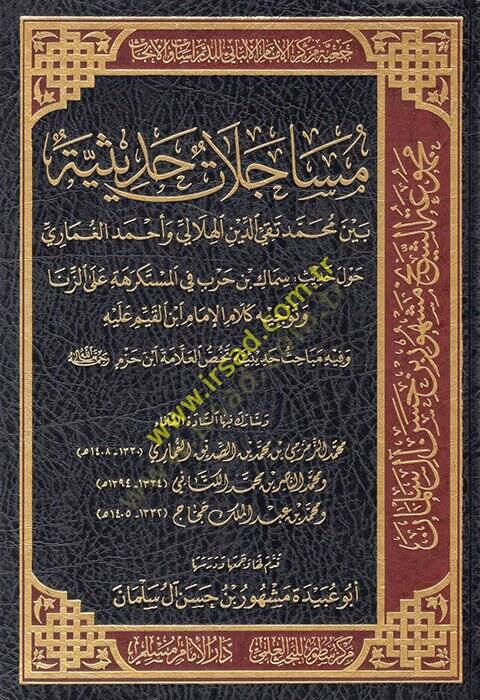 جمعية مركز الإمام الألباني للدراسات والأبحاث
مُسَاجَلَاتٌ حَدِيثِيَّةٌ
بَيْنَ مُحَمَّد تَقِيّ الدِّين الهِلَالِي وَأَحْمَد الغُمَارِي
حَوْلَ حَدِيث: سِمَاك بْن حَرْب فِي المُسْتَكْرَهَةِ عَلَى الزِّنَا
وَتَوْجِيه كَلَامِ الإِمَام ابْن القَيِّم عَلَيْهِ
وَفِيهِ مَبَاحِث حَدِيثِيَّة تَخُصُّ العَلَّامَة ابْن حَزْم رَحِمَهُ اللَّهُ
وشارك فيها السادة
محمد الزمزمي بن محمد بن الصديق الغماري (١٣٣٠-١٤٠٨هـ)
ومحمد الناصر بن محمد الكتاني (١٣٣٤-١٣٩٤هـ)
ومحمد بن عبد الملك حجاج (١٣٣٢-١٤٠٥هـ)
قدم لها وجمعها ودرسها
أبو عبيدة مشهور بن حسن آل سلمان
مجموعة الشيخ مشهور بن حسن آل سلمان
مركز سطور للبحث العلمي
دار الإمام مسلم
www.irsad.com.tr